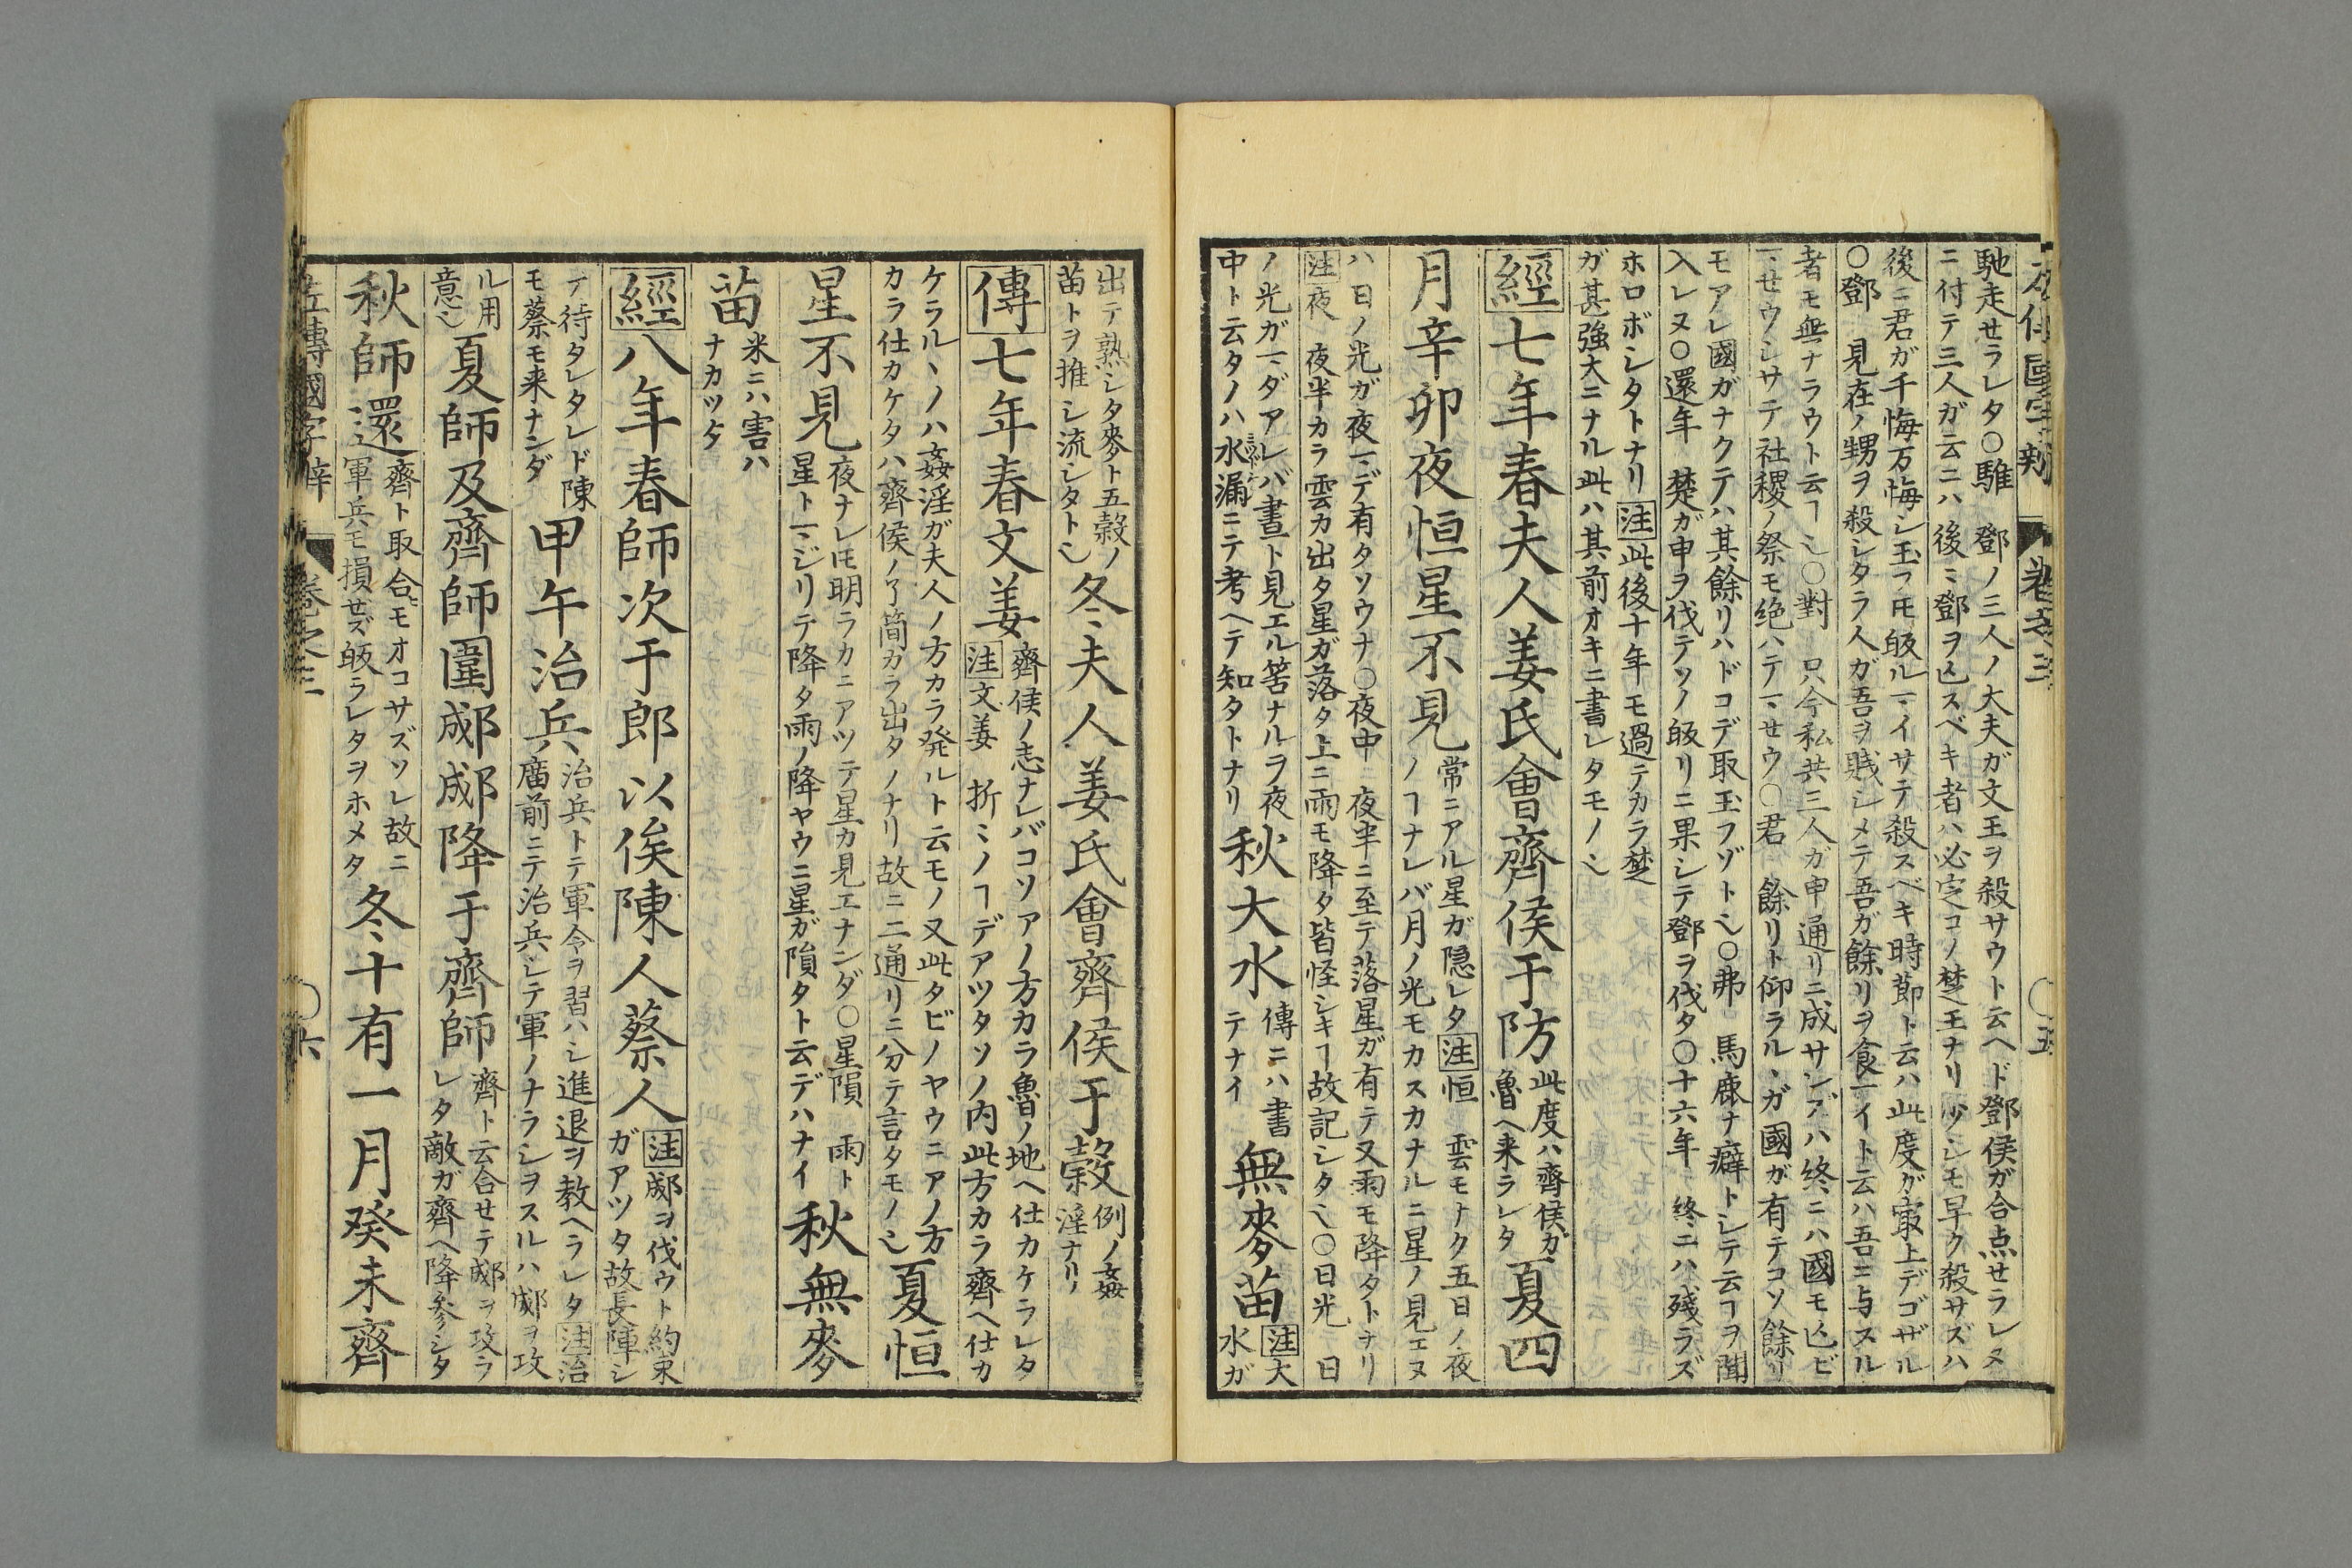 左傳國字辨 卷之三 〇五
馳走セラレタ〇騅 鄧ノ三人ノ大夫ガ文王ヲ殺サウト云ヘド鄧侯ガ合点セラレヌ
ニ付テ三人ガ云ニハ後ニ鄧ヲ亡スベキ者ハ必定コノ楚王ナリ少シモ早ク殺サズハ
後ニ君ガ千悔万悔シ玉フㇳモ皈ルマイサテ殺スベキ時節ト云ハ此度ガ㝡上デゴザル
〇鄧 見在ノ甥ヲ殺シタラ人ガ吾ヲ賎シメテ吾ガ餘リヲ食マイト云ハ吾ニ与スル
者モ無ナラウト云ヿ也〇對 只今私共三人ガ申通リニ成サレズハ終ニハ國モ亡ビ
マセウシサテ社稷ノ祭モ絶ハテマセウ〇君 餘リト仰ラルヽガ國ガ有テコソ餘リ
モアレ國ガナクテハ其餘リハドコデ取玉フゾト也〇弗 馬鹿ナ癖トシテ云ヿヲ聞
入レヌ〇還年 楚ガ申ヲ伐テソノ皈リニ果シテ鄧ヲ伐タ〇十六年 終ニハ残ラズ
ホロボシタトナリ注此後十年モ過テカラ楚
ガ甚強大ニナル此ハ其前オキニ書レタモノ也
經七年春夫人姜氏會齊侯于防
此度ハ齊侯ガ
魯ヘ来ラレタ
夏四
月辛卯夜恒星不見
常ニアル星ガ隠レタ注恒 雲モナク五日ノ夜
ノヿナレバ月ノ光モカスカナルニ星ノ見エヌ
ハ日ノ光ガ夜マデ有タソウナ〇夜中 夜半ニ至テ落星ガ有テ又雨モ降タトナリ
注夜 夜半カラ雲カ出タ星ガ落タ上ニ雨モ降タ皆怪シキヿ故記シタ也〇日光 日
ノ光ガマダアレバ晝ト見エル筈ナルヲ夜
中ト云タノハ水漏ニテ考ヘテ知タトナリ
秋大水
傳ニハ書
テナイ
無麥苗
注大
水ガ
出テ熟シタ麥ト五穀ノ
苗トヲ推シ流シタト也
冬夫人姜氏會齊侯于穀
例ノ姦
淫ナリ
傳七年春文姜
齊侯ノ志ナレバコソアノ方カラ魯ノ地ヘ仕カケラレタ
注文姜 折ミノヿデアツタソノ内此方カラ齊ヘ仕カ
ケラルヽノハ姦淫ガ夫人ノ方カラ発ルト云モノ又此タビノヤウニアノ方
カラ仕カケタハ齊侯ノ了簡カラ出タノナリ故ニ二通リニ分テ言タモノ也
夏恒
星不見
夜ナレㇳモ明ラカニアツテ星カ見エナンダ〇星隕 雨ト
星トマジリテ降タ雨ノ降ヤウニ星ガ隕タト云デハナイ
秋無麥
苗
米ニハ害ハ
ナカツタ
經八年春師次于郎以俟陳人蔡人
注郕ヲ伐ウト約束
ガアツタ故長陣シ
テ待タレタレド陳
モ蔡モ来ナンダ
甲午治兵
治兵トテ軍令ヲ習ハシ進退ヲ教ヘラレタ注治
廣前ニテ治兵シテ軍ノナラシヲスルハ郕ヲ攻
ル用
意也
夏師及齊師圍郕郕降于齊師
齊ト云合セテ郕ヲ攻ラ
レタ敵ガ齊ヘ降参シタ
秋師還
齊ト取合モオコサズソレ故ニ
軍兵モ損セズ皈ラレタヲホメタ
冬十有一月癸未齊
左傳國字辨 卷之三 〇六